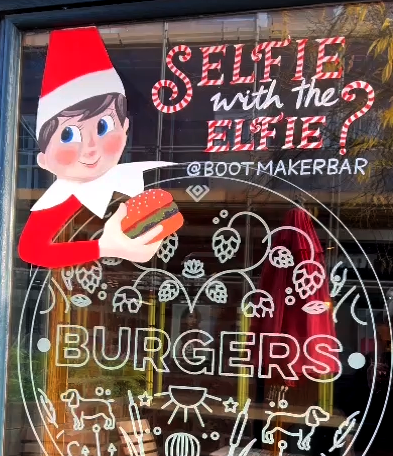 SELFIE
with the
ELFIE?
@BOOTMAKERBAR
BURGERS